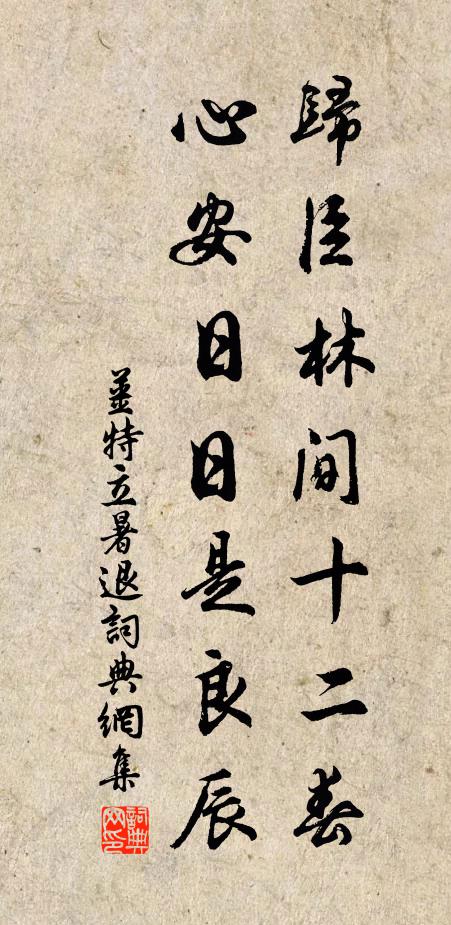 歸臣林間十二春
心安日日是良辰
薑特立暑退詞典網集
詞典
网印